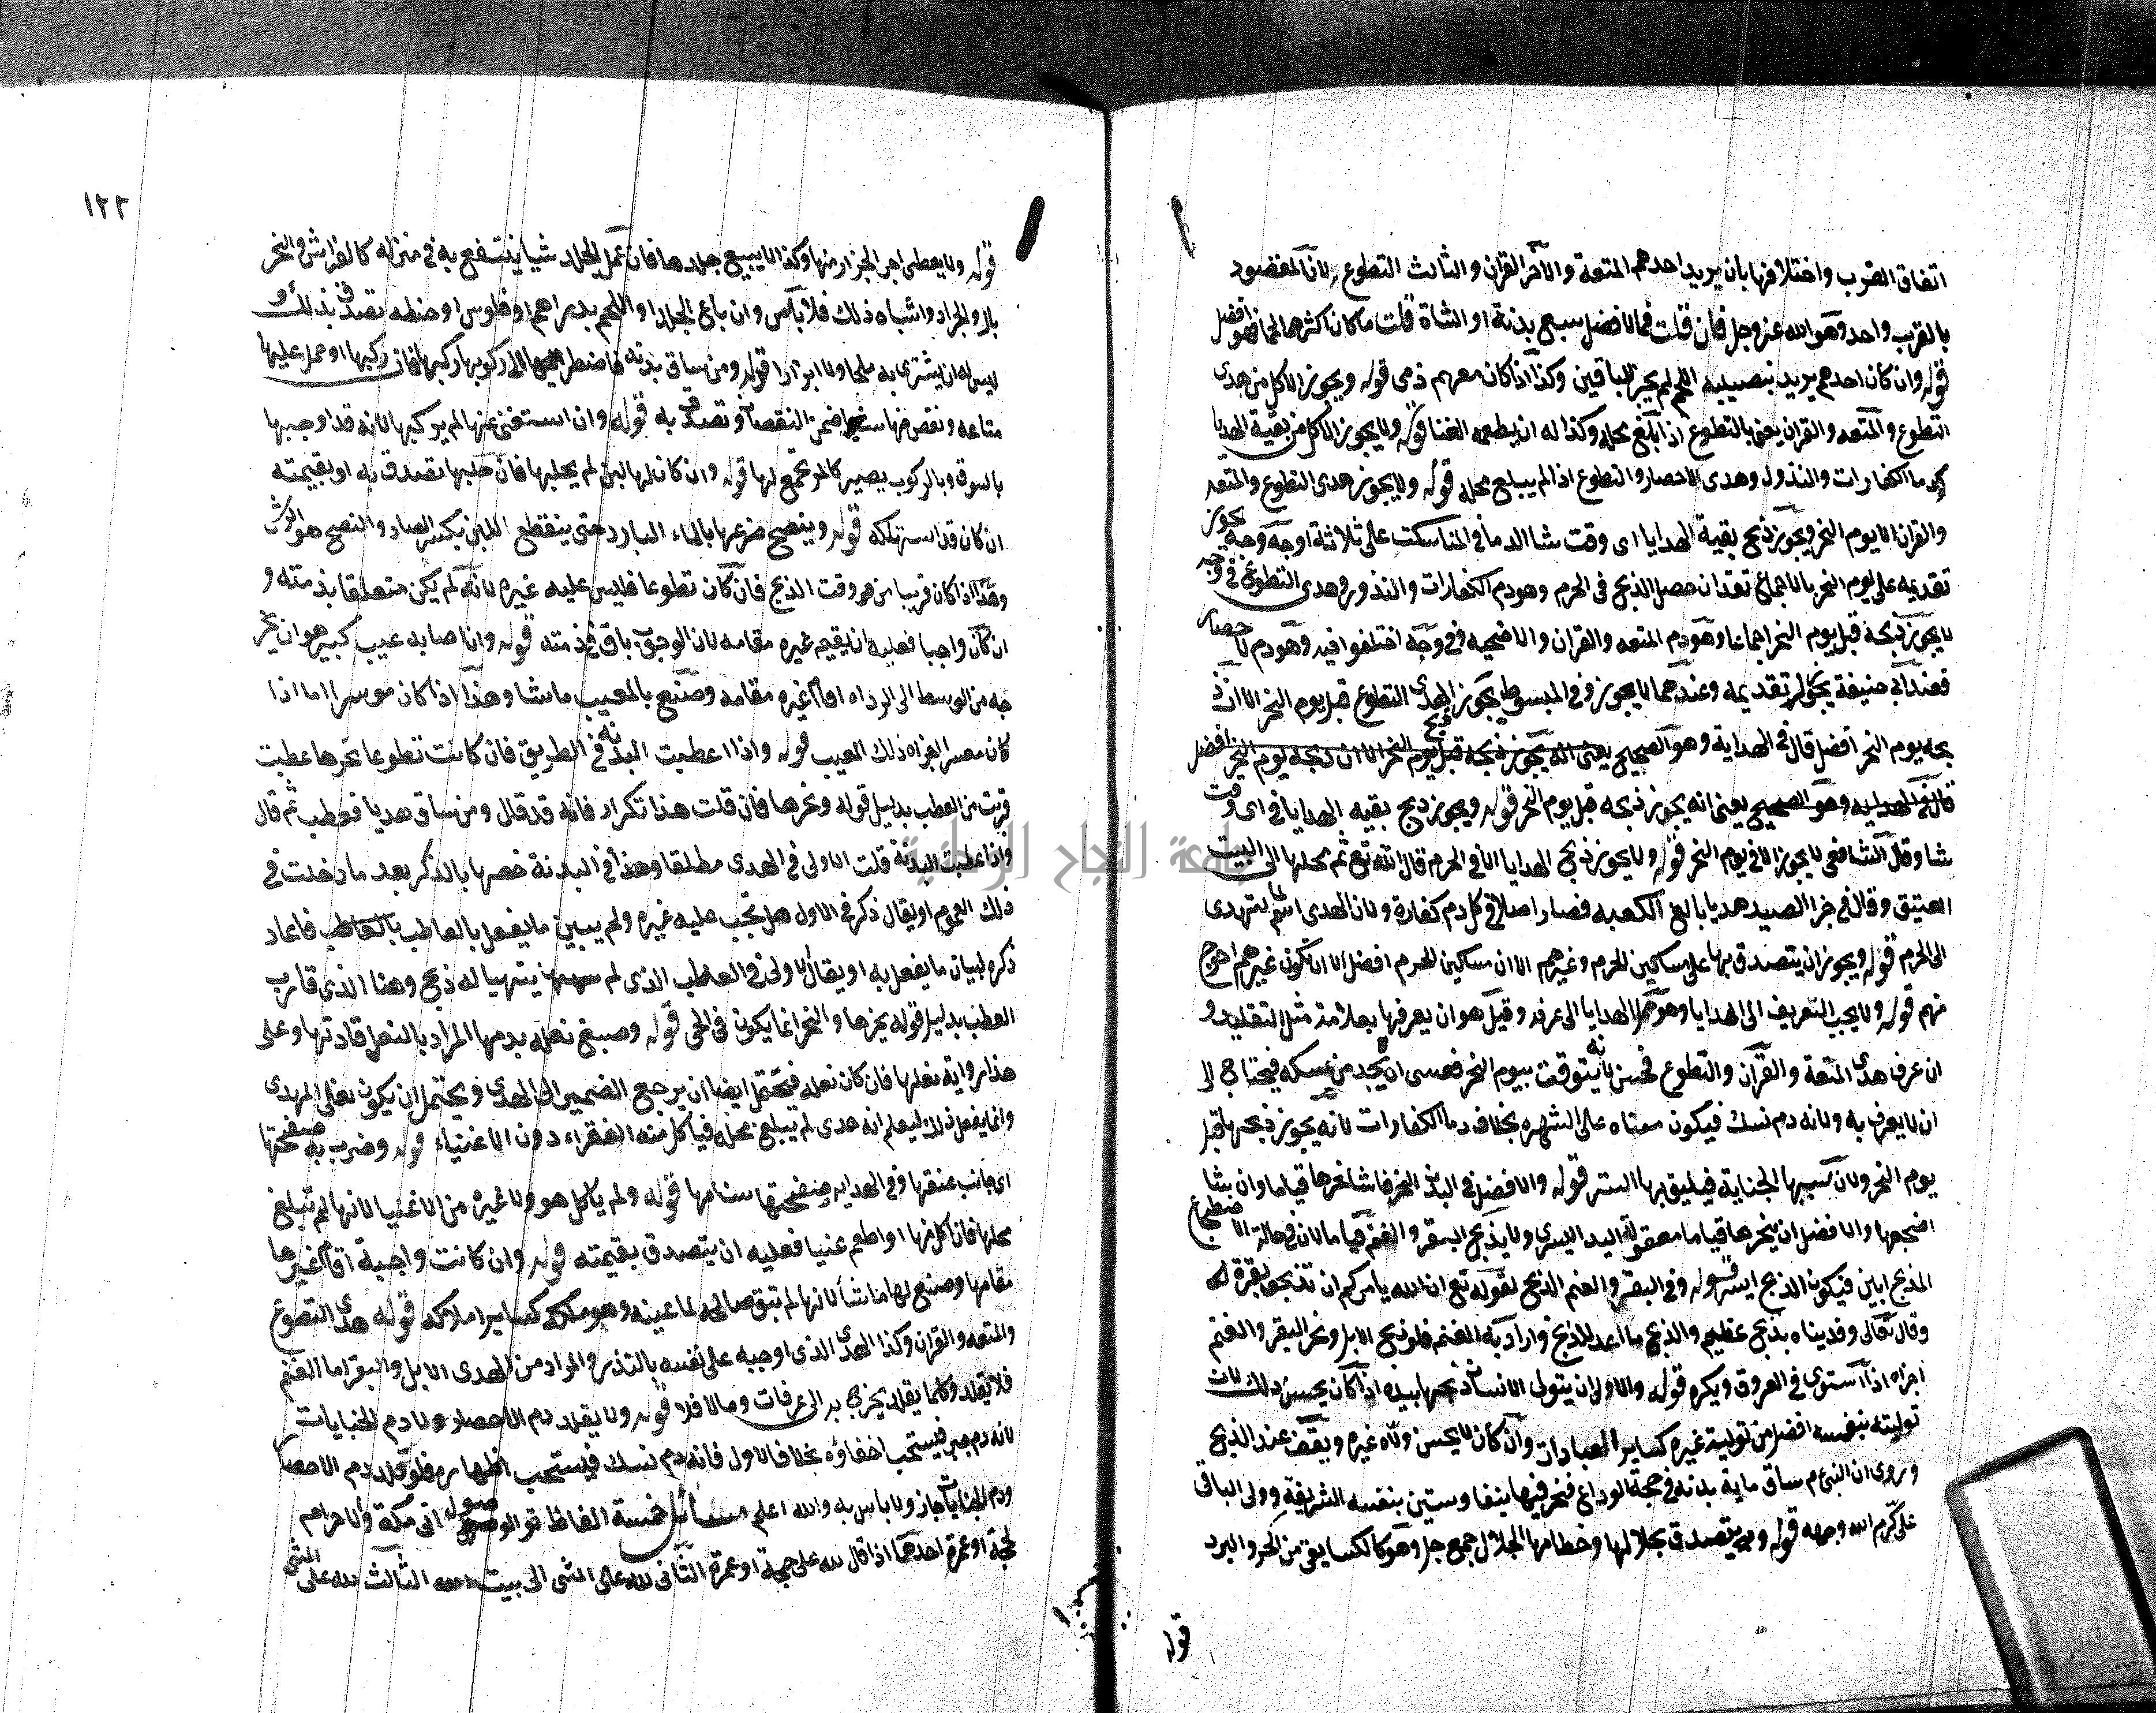 اتفاق القرب واختلافها بان يريد احدهم المتعة والآخر القران والثالث التطوع لان المقصود
بالقرب واحد وهو الله عز وجل فان قلت فما الافضل سبع بدنة او الشاة قلت ما كان اكثرهما لحما فهو افضل
قوله وان كان احدهم يريد بنصيبه اللحم لم يجز للباقين وكذا اذا كان معهم ذمي قوله ويجوز الاكل من هدى
التطوع والمتعه والقران يعني بالتطوع اذا بلغ محله وكذا له ان يطعم الغنا قوله ولا يجوز الاكل من بقية الهدايا
كدما الكفارات والنذور وهدى الاحصار والتطوع اذا لم يبلغ محله قوله ولا يجوز هدى التطوع والمتعه
والقران الا يوم النحر ويجوز ذبح بقية الهدايا اى وقت شا الدما في المناسك على ثلاثة اوجه وجه يجوز
تقديمه على يوم النحر بالاجماع بعد ان حصل الذبح فى الحرم وهو دم الكفارات والنذور وهدى التطوع وفي وجه
لا يجوز ذبحه قبل يوم النحر اجماعا وهو دم المتعه والقران والاضحيه وفي وجه اختلفوا فيه وهو دم الاحصار
فعند ابي حنيفة يجوز تقديمه وعندهما لا يجوز وفي المبسوط يجوز ذبح الهدى التطوع قبل يوم النحر الا ان ذ
بحه يوم النحر افضل قال في الهداية وهو الصحيح يعني انه يجوز ذبحه قبل يوم النحر الا ان ذبحه يوم النحر افضل
قال في الهدايه وهو الصحيح يعني انه يجوز ذبحه قبل يوم النحر قوله ويجوز ذبح بقيه الهدايا في اى وقت
شا وقال الشافعى لا يجوز الا في يوم النحر قوله ولا يجوز ذبح الهدايا الا في الحرم قال الله تع ثم محلها الى البيت
العتيق وقال في جزا الصيد هديا بالغ الكعبه فصار اصلا في كل دم كفارة ولان الهدى اسم لما يهدى
الى الحرم قوله ويجوز ان يتصدق بها على مساكين الحرم وغيرهم الا ان مساكين الحرم افضل الا ان يكون غيرهم احوج
منهم قوله ولا يجب التعريف الى الهدايا وهو حمل الهدايا الى عرفه وقيل هو ان يعرفها بعلامة مثل التقليد و
ان عرف هدى المتعة والقران والتطوع فحسن لانه يتوقت بيوم النحر فعسى ان لا يجد من يمسكه فيحتاج الى
ان لا يعرف به ولانه دم نسك فيكون مبناه على الشهره بخلاف دما الكفارات لانه يجوز ذبحها قبل
يوم النحر ولان سببها الجناية فيليق بها الستر قوله والافضل في البدن النحر فان شا نحرها قياما وان شا
اضجعها والافضل ان ينحرها قياما معقولة اليد اليسرى ولا يذبح البقر والغنم قياما لان في حالة الاضطجاع
المذبح ابين فيكون الذبح ايسر قوله وفي البقر والغنم الذبح لقوله تع ان الله يامركم ان تذبحوا بقرة
وقال تعالى وفديناه بذبح عظيم والذبح ما اعد للذبح واراد به الغنم فلو ذبح الابل ونحر البقر والغنم
اجزاه اذا استوى في العروق ويكره قوله والاولى ان يتولى الانسان ذبحها بيده اذا كان يحسن ذلك لان
توليته بنفسه افضل من تولية غيره كساير العبادات وان كان لا يحسن ولاه غيره ويقف عند الذبح
وروى ان النبى م ساق ماية بدنه في حجة الوداع فنحر فيها نيفا وستين بنفسه الشريفة وولى الباقى
على كرم الله وجهه قوله ويتصدق بجلالها وخطامها الجلال جمع جل وهو كالكسا يقى من الحر والبرد
قوله
١٢٢
قوله ولا يعطى اجر الجزار منها وكذا لا يبيع جلدها فان عمل الجلد شيا ينتفع به في منزله كالفراش والنخر
بال والجراب واشباه ذلك فلا بأس وان باع الجلد او اللحم بدراهم او فلوس او حنطه تصدق بذلك و
ليس له ان يشترى به ملحا ولا ابزارا قوله ومن ساق بدنه فاضطر الى ركوبها ركبها فان ركبها او حمل عليها
متاعه ونقص منها شى ضمن النقصان وتصدق به قوله وان استغنى عنها لم يركبها لانه قد اوجبها
بالسوق وبالركوب يصير كالمرتجع لها قوله وان كان لها لبن لم يحلبها فان حلبها تصدق به او بقيمته
ان كان قد استهلكه قوله وينضح ضرعها بالماء البارد حتى ينقطع اللبن بكسر الضاد والنضح هو الرش
وهذا اذا كان قريبا من وقت الذبح فان كان تطوعا فليس عليه غيره لانه لم يكن متعلقا بذمته و
ان كان واجبا فعليه ان يقيم غيره مقامه لان الوجوب باق في ذمته قوله وان اصابه عيب كبير هو ان يخر
جه من الوسط الى الرداه اقام غيره مقامه وصنع بالمعيب ما شا وهذا اذا كان موسرا اما اذا
كان معسرا اجزاه ذلك المعيب قوله واذا عطبت البدنه في الطريق فان كانت تطوعا نحرها عطبت
قربت من العطب بدليل قوله ونحرها فان قلت هذا تكرار فانه قد قال ومن ساق هديا فعطب ثم قال
واذا عطبت البدنة قلت الاولى في الهدى مطلقا وهذا في البدنة خصها بالذكر بعد ما دخلت في
ذلك العموم او يقال ذكر في الاول هل يجب عليه غيره ولم يبين ما يفعل بالعاطب بالعاطب فاعاد
ذكره لبيان ما يفعل به او يقال الاولى في العاطب الذى لم يتهيا له ذبح وهنا الذى قارب
العطب بدليل قوله نحرها والنحر انما يكون في الحى قوله وصبغ نعله بدمها المراد بالنعل قلادتها وعلى
هذا رواية نعلها فان كان نعله فيحتمل ايضا ان يرجع الضمير الى الهدى ويحتمل ان يكون نعل المهدى
وانما يفعل ذلك ليعلم انه هدى لم يبلغ محله فياكل منه الفقراء دون الاغنياء قوله وضرب به صفحتها
اى جانب عنقها وفي الهدايه صفحتها سنامها قوله ولم ياكل هو ولا غيره من الاغنيا لانها لم تبلغ
محلها فان اكل منها او اطعم غنيا فعليه ان يتصدق بقيمته قوله وان كانت واجبة اقام غيرها
مقامها وصنع لها ما شا لانها لم تبق صالحه لما عينه وهو ملكه كساير املاكه قوله هدى التطوع
والمتعه والقران وكذا الهدى الذى اوجبه على نفسه بالنذر والمراد من الهدى الابل والبقر اما الغنم
فلا يقلد وكلما يقلد يخرج به الى عرفات وما لا فلا قوله ولا يقلد دم الاحصار ولا دم الجنايات
لانه دم جبر فيستحب اخفاؤه بخلاف الاول فانه دم نسك فيستحب اظهاره فلو قلد دم الاحصار
ودم الجنايات جاز ولا باس به والله اعلم مسائل خمسة الفاظ الوصول الى مكة والاحرام
لحجة او عمرة احدها اذا قال لله على حجة او عمرة الثانى لله على المشى الى بيت الله الثالث لله على المشى
جامعة النجاح الوطنية